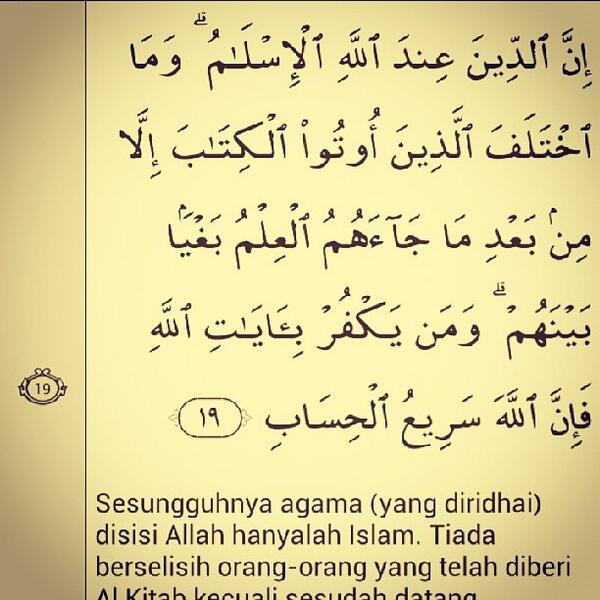 إِنَّ ٱلدِّينَ عِندَ ٱللَّهِ ٱلْإِسْلَـٰمُ ۗ وَمَا
ٱخْتَلَفَ ٱلَّذِينَ أُوتُوا۟ ٱلْكِتَـٰبَ إِلَّا
مِنۢ بَعْدِ مَا جَآءَهُمُ ٱلْعِلْمُ بَغْيًۢا
بَيْنَهُمْ ۗ وَمَن يَكْفُرْ بِـَٔايَـٰتِ ٱللَّهِ
19
فَإِنَّ ٱللَّهَ سَرِيعُ ٱلْحِسَابِ ١٩
Sesungguhnya agama (yang diridhai)
disisi Allah hanyalah Islam. Tiada
berselisih orang-orang yang telah diberi
Al Kitab kecuali sesudah datang